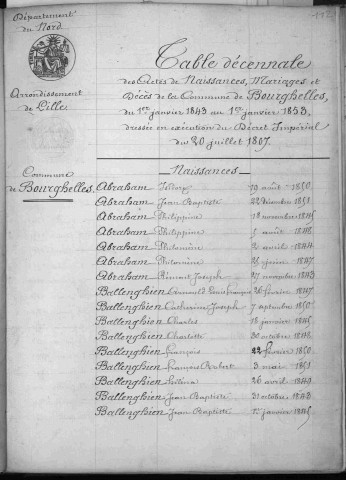 Département
du Nord.
Arrondissement
de Lille
Table décennale
des Actes de Naissances, Mariages et
Décès de la Commune de Bourghelles,
du 1er janvier 1843 au 1er janvier 1853,
dressée en exécution du Décret Impérial
du 20 juillet 1807.
Commune
de Bourghelles.
Naissances
Abraham 19 août 1850
Abraham Jean Baptiste 22 décembre 1851
Abraham Philippine 18 novembre 1845
Abraham Philippine août 1848
Abraham Philomène 2 avril 1844
Abraham Philomène juin 1847
Abraham Joseph 27 novembre 1843
Ballenghien Louis François 26 février 1847
Ballenghien Catherine Joseph 7 septembre 1850
Ballenghien Charles 18 janvier 1845
Ballenghien Charlotte 30 octobre 1848
Ballenghien François 22 février 1850
Ballenghien François Robert 3 mai 1851
Ballenghien 26 avril 1849
Ballenghien Jean Baptiste 31 octobre 1843
Ballenghien Jean Baptiste janvier 1845